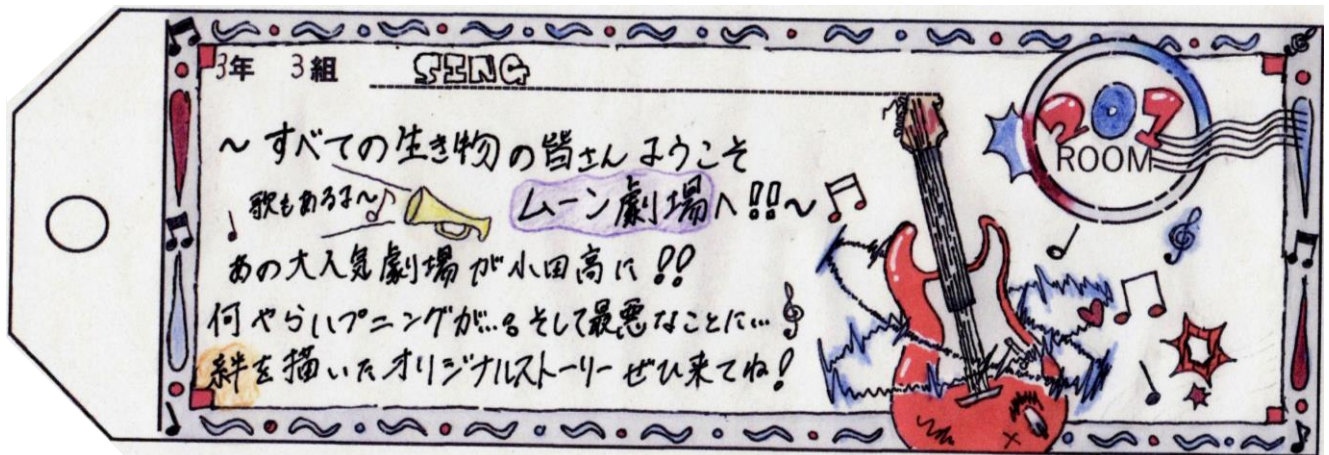 3年 3組 SING
～すべての生き物の皆さんようこそ
歌もあるよ～♪ ムーン劇場へ!!～
あの大人気劇場が小田高に!!
何やらハプニングが…。そして最悪なことに…
絆を描いたオリジナルストーリーぜひ来てね!
207
ROOM